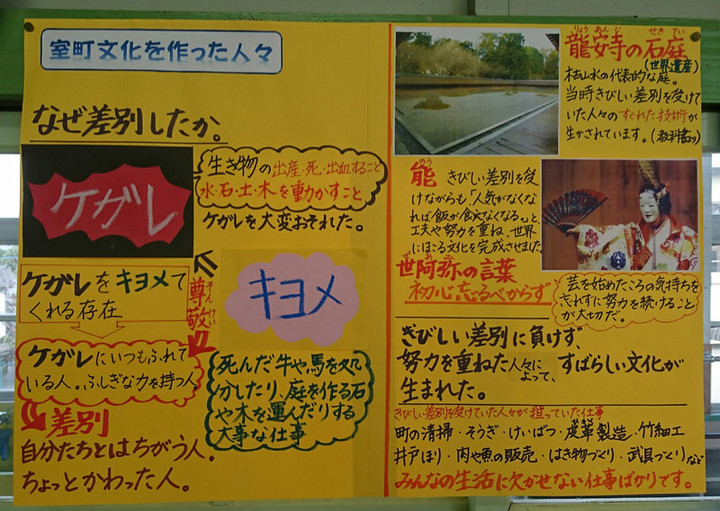 室町文化を作った人々
なぜ差別したか。
ケガレ
生き物の出産・死・出血すること
水・石・土・木を動かすこと
ケガレを大変おそれた。
ケガレをキヨメて
くれる存在
そんけい
尊敬
キヨメ
ケガレにいつもふれて
いる人。ふしぎな力を持つ人
死んだ牛や馬を処
分したり、庭を作る石
や木を運んだりする
大事な仕事
差別
自分たちとはちがう人。
ちょっとかわった人。
りょうあんじ せきてい
龍安寺の石庭
(世界遺産)
枯山水の代表的な庭。
当時きびしい差別を受けて
いた人々のすぐれた技術が
生かされています。(教科書より)
のう
能 きびしい差別を受
けながらも「人気がなくな
れば飯が食えなくなる。」と、
工夫や努力を重ね、世界
にほこる文化を完成させました。
ぜあみ
世阿弥の言葉
初心忘るべからず
芸を始めたころの気持ちを
わすれずに努力を続けること
が大切だ。
きびしい差別に負けず、
努力を重ねた人々に
よって、すばらしい文化が
生まれた。
きびしい差別を受けていた人々が担っていた仕事
町の清掃・そうぎ・けいばつ・皮革製造・竹細工
井戸ほり・肉や魚の販売・はき物づくり・武具づくりなど
みんなの生活に欠かせない仕事ばかりです。